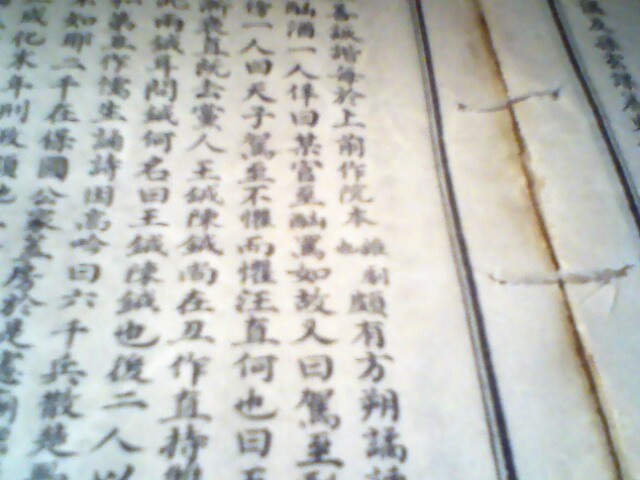 善詼諧每於上前作院本雜劇也頗有方朔譎
酗酒一人佯曰某官至酗罵如故又曰駕至
一人曰天子駕至不懼而懼汪直何也曰
衰直既去黨人王鉞陳鉞尚在丑作直持
兩鉞耳問鉞何名曰王鉞陳鉞也後二人以
作儒生誦詩因高吟曰六千兵散楚
如那二千在保國公家蓋房於是憲
成化末年刑政頗